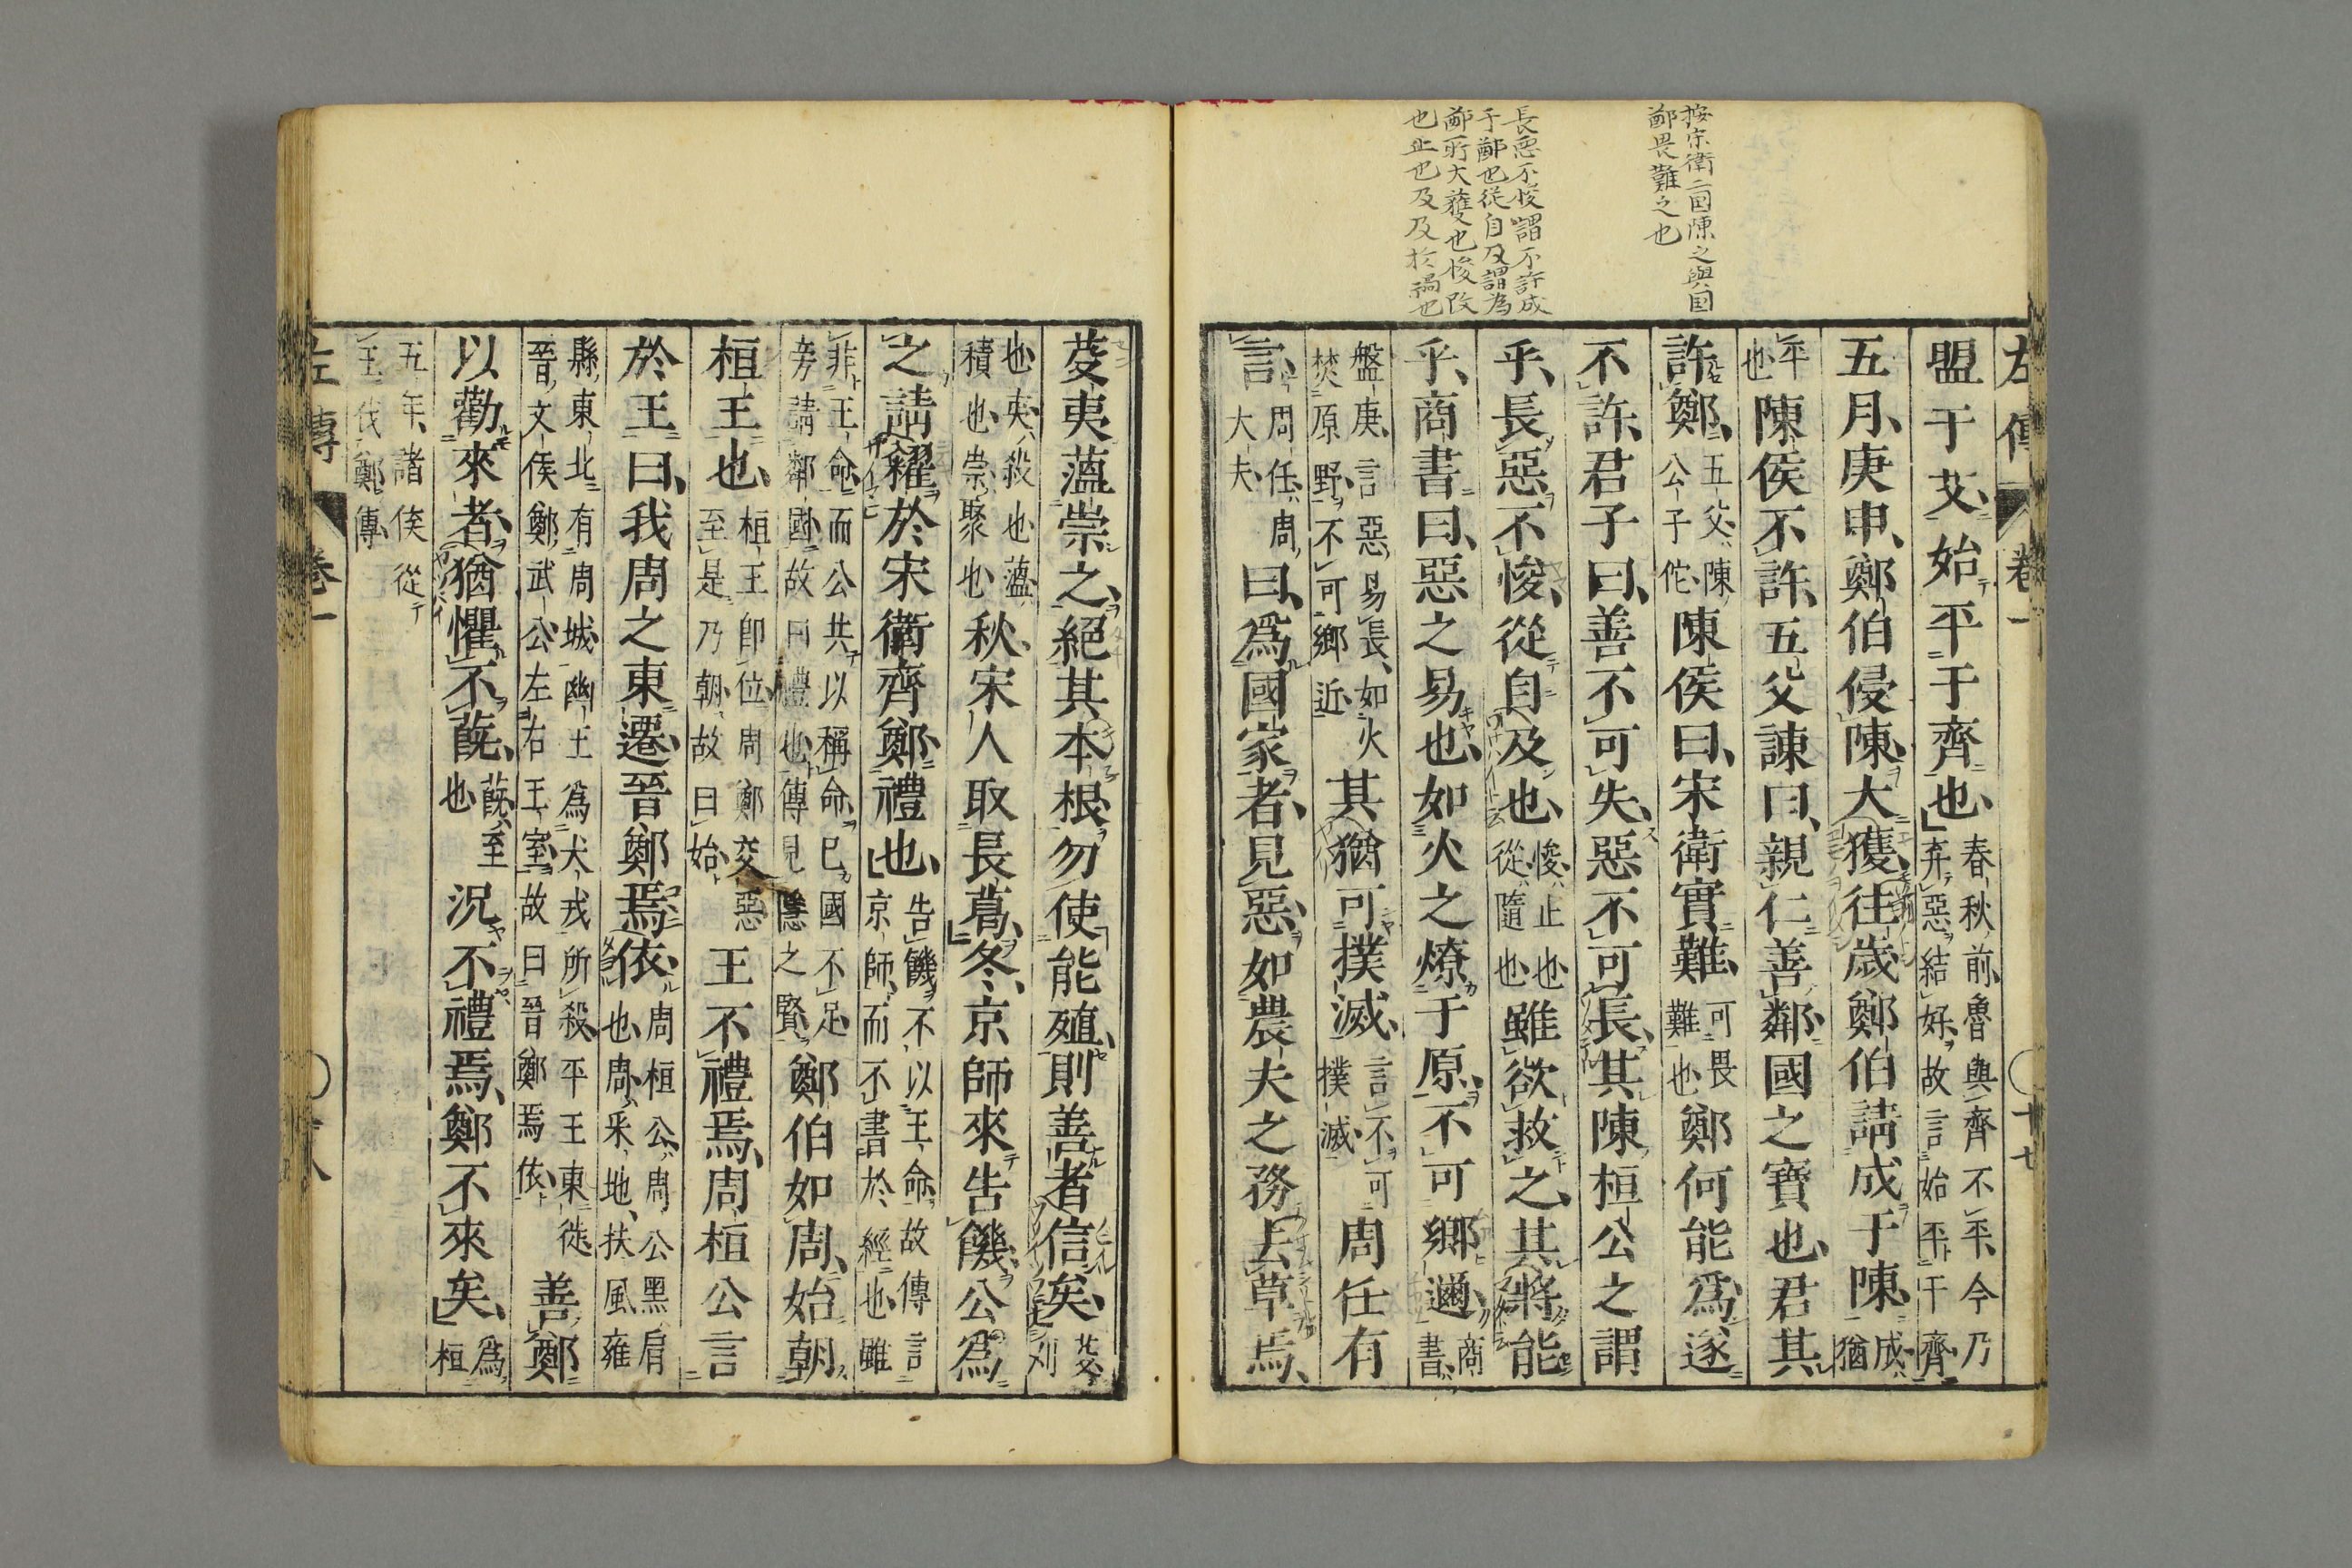 左傳 卷一 十七
按宋衛二国陳之與国
鄭畏難之也
長惡不悛謂不許成
于鄭也從自及謂為
鄭所大獲也悛改
也止也及及於禍也
盟于艾始平于齊也春秋前魯與齊不平今乃弃惡結好故言始平于齊
五月庚申鄭伯侵陳大獲往歲鄭伯請成于陳成猶
平也陳侯不許五父諫曰親仁善鄰國之寶也君其
許鄭五父陳公子佗陳侯曰宋衛實難可畏難也鄭何能爲遂
不許君子曰善不可失惡不可長其陳桓公之謂
乎長惡不悛從自及也悛止也從隨也雖欲救之其將能
乎商書曰惡之易也如火之燎于原不可鄉邇商書
盤庚言惡易長如火焚原野不可鄉近其猶可撲滅言不可撲滅周任有
言周任周大夫曰爲國家者見惡如農夫之務去草焉
芟夷薀崇之絕其本根勿使能殖則善者信矣芟刈
也夷殺也薀積也崇聚也秋宋人取長葛冬京師來告饑公爲
之請糴於宋衛齊鄭禮也告饑不以王命故傳言京師而不書於經也雖
非王命而公共以稱命已國不足旁請鄰國故曰禮也傳見隱之賢鄭伯如周始朝
桓王也桓王卽位周鄭交惡至是乃朝故曰始王不禮焉周桓公言
於王曰我周之東遷晉鄭焉依周桓公周公黑肩也周采地扶風雍
縣東北有周城幽王爲犬戎所殺平王東徙晉文侯鄭武公左右王室故曰晉鄭焉依善鄭
以勸來者猶懼不蔇蔇至也況不禮焉鄭不來矣爲桓
五年諸侯從王伐鄭傳
左傳 卷一 十八